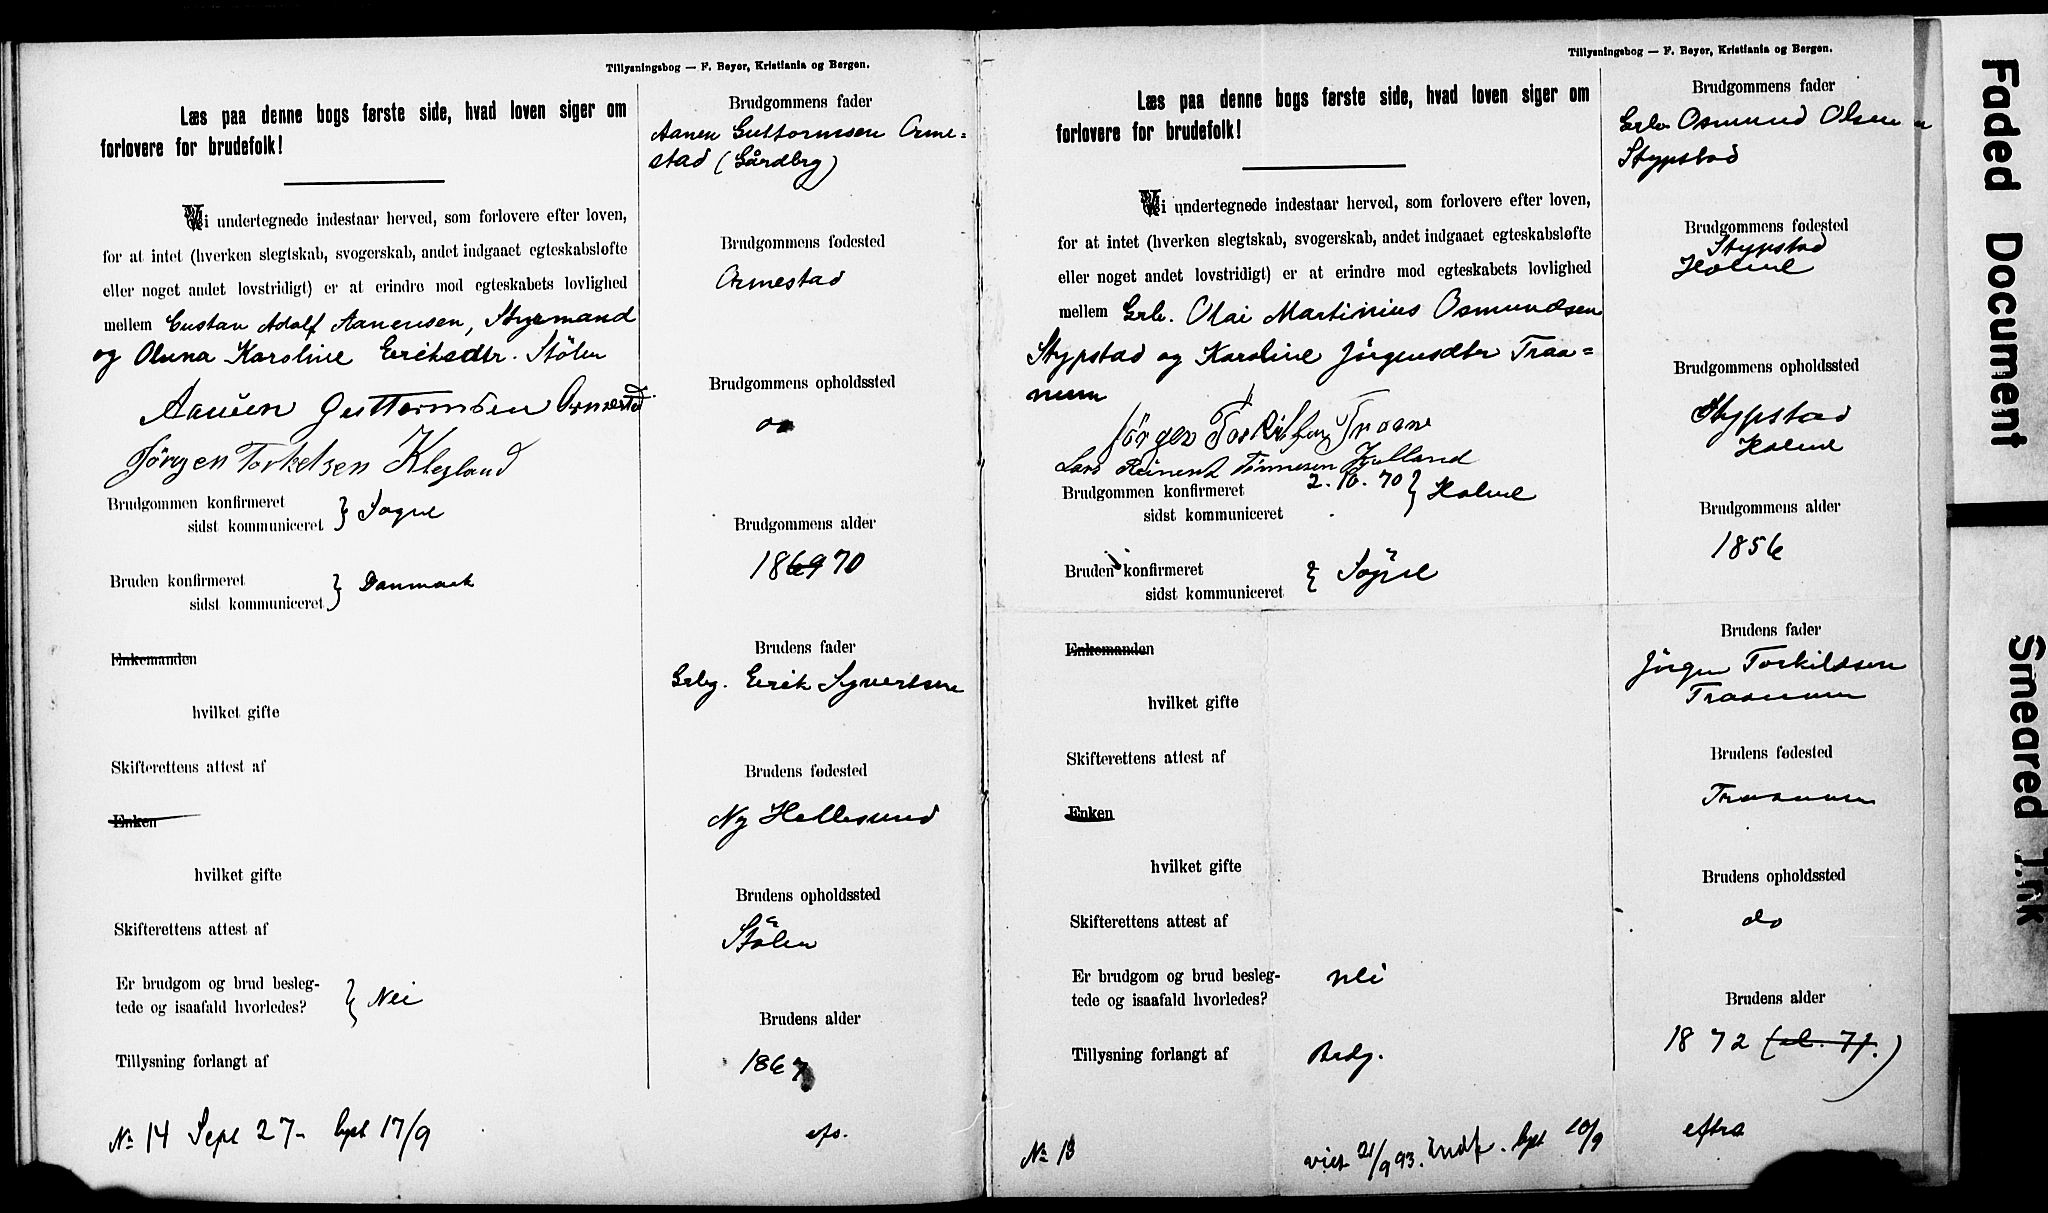 Tillysningsbog — F. Beyer, Kristiania og Bergen.
Læs paa denne bogs første side, hvad loven siger om
forlovere for brudefolk!
Vi undertegnede indestaar herved, som forlovere efter loven,
for at intet (hverken slegtskab, svogerskab, andet indgaaet egteskabsløfte
eller noget andet lovstridigt) er at erindre mod egteskabets lovlighed
mellem Gustav Adolf Aanensen, Styrmand
og Oluna Karoline Eriksdtr. Stölen
Aanen Guttormsen
Jörgen Torkelsen Klepland
Brudgommen konfirmeret
sidst kommuniceret } Søgne
Bruden konfirmeret
sidst kommuniceret } Danmark
Enkemanden
hvilket gifte
Skifterettens attest af
Enken
hvilket gifte
Skifterettens attest af
Er brudgom og brud besleg-
tede og isaafald hvorledes? } Nei
Tillysning forlangt af
No 14 Sept 27- lyst 17/9
Brudgommens fader
Aanen Guttormsen Orme-
stad (Gårdbrg)
Brudgommens fødested
Ormestad
Brudgommens opholdssted
do
Brudgommens alder
186970
Brudens fader
Erik Syvertsen
Brudens fødested
Ny Hellesund
Brudens opholdssted
Stölen
Brudens alder
1867
Tillysningsbog — F. Beyer, Kristiania og Bergen.
Læs paa denne bogs første side, hvad loven siger om
forlovere for brudefolk!
Vi undertegnede indestaar herved, som forlovere efter loven,
for at intet (hverken slegtskab, svogerskab, andet indgaaet egteskabsløfte
eller noget andet lovstridigt) er at erindre mod egteskabets lovlighed
mellem Olai Martinius Osmundsen
Stypstad og Karoline Jörgensdter Traa=
num
Jörgen
Lars Reinert Tönnesen
Brudgommen konfirmeret 2.10.70
sidst kommuniceret } Holme
Bruden konfirmeret
sidst kommuniceret } Søgne
Enkemanden
hvilket gifte
Skifterettens attest af
Enken
hvilket gifte
Skifterettens attest af
Er brudgom og brud besleg-
tede og isaafald hvorledes? nei
Tillysning forlangt af Brdg.
No 13 viet 21/9 93. lyst 10/9
Brudgommens fader
Osmund Olsen
Stypstad
Brudgommens fødested
Stypstad
Holme
Brudgommens opholdssted
Stypstad
Holme
Brudgommens alder
1856
Brudens fader
Jörgen Torkildsen
Traanum
Brudens fødested
Traanum
Brudens opholdssted
do
Brudens alder
1872 (al. 71.)
Faded Document
Smeared Ink